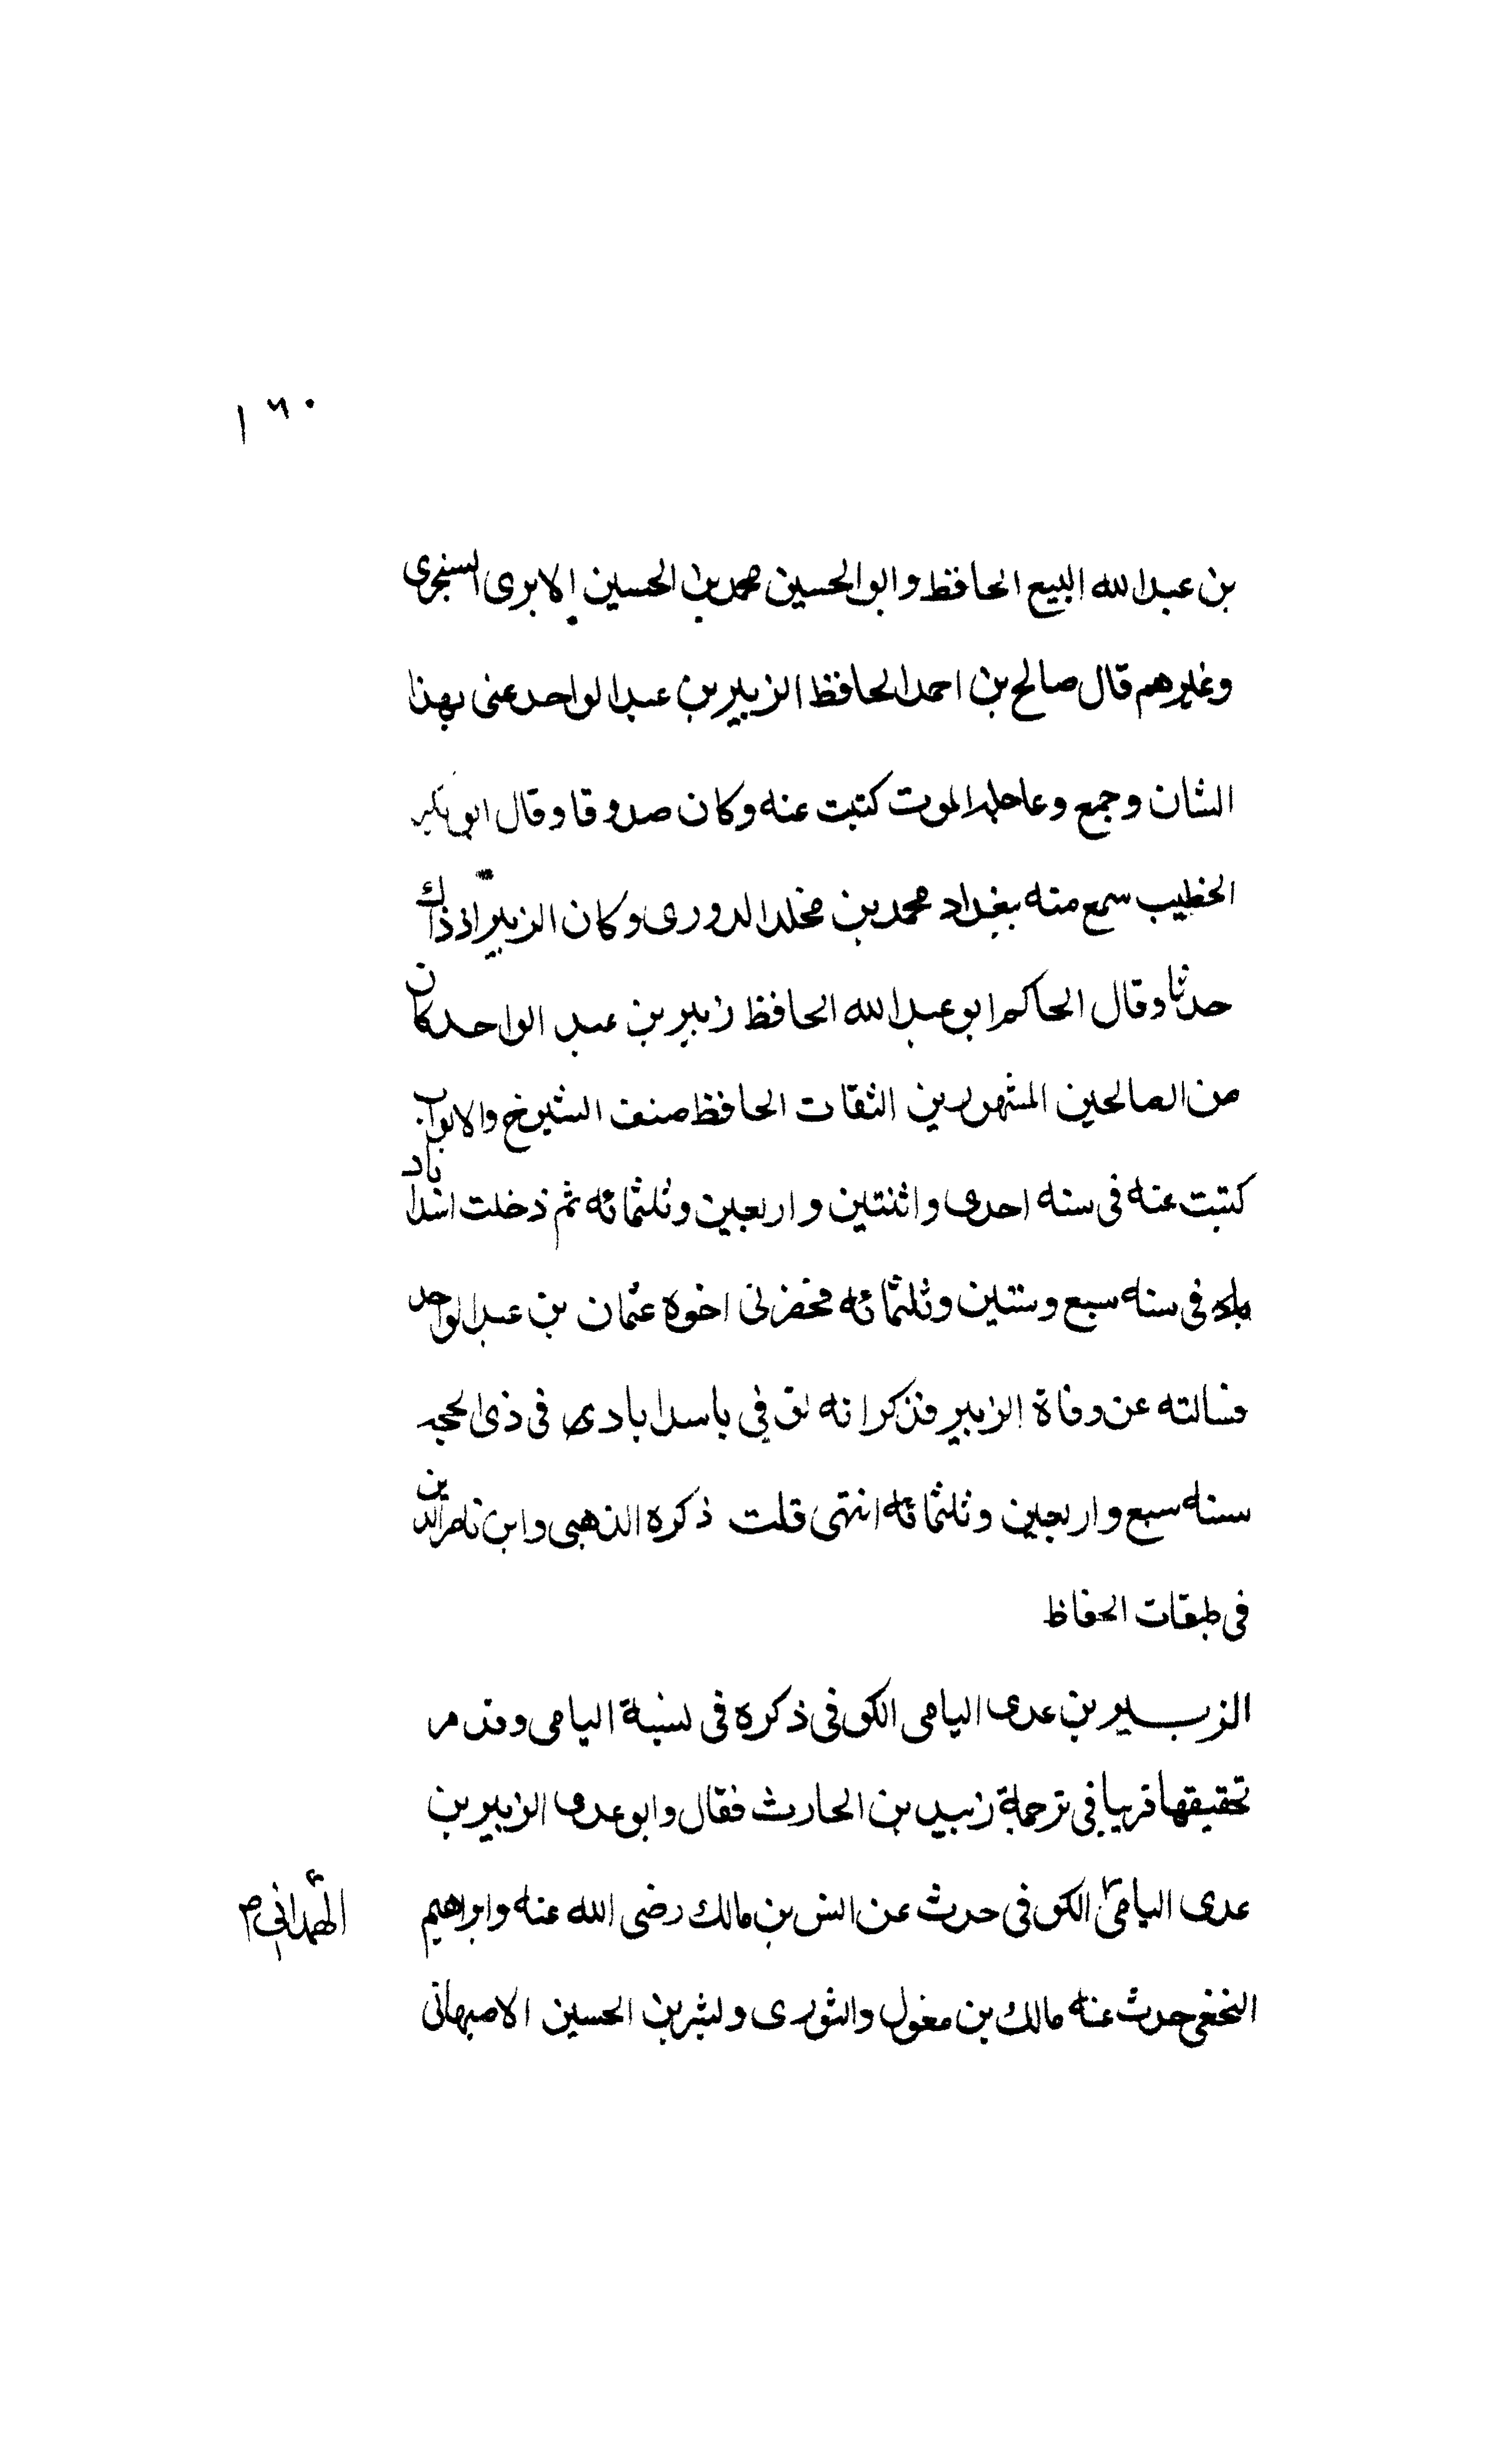 ١٦٠
بن عبدالله البيع الحافظ وابوالحسين محمد بن الحسين الابرى السنجرى
وغيرهم قال صالح بن احمد الحافظ الزبير بن عبدالواحد عنى بهذا
الشان وجمع وعاجله الموت كتبت عنه وكان صدوقا وقال ابو بكر
الخطيب سمع منه ببغداد محمد بن مخلد الدورى وكان الزبير اذ ذاك
حدثا وقال الحاكم ابو عبدالله الحافظ زبير بن عبد الواحد كان
من الصالحين المشهورين الثقات الحافظ صنف الشيوخ والابواب
كتبت عنه فى سنه احدى واثنتين واربعين وثلثمائه ثم دخلت اسدا باد
بلده فى سنه سبع وستين وثلثمائه فحضرنى اخوه عثمان بن عبدالواحد
فسالته عن وفاة الزبير فذكر انه توفي باسدابادى فى ذى الحجه
سنه سبع واربعين وثلثمائه انتهى قلت ذكره الذهبى وابن ناصرالدين
فى طبقات الحفاظ
الزبير بن عدى اليامى الكوفى ذكره فى نسبة اليامى وقد مر
تحقيقها قريبا في ترجمة زبيد بن الحارث فقال وابوعدى الزبير بن
عدى اليامى الكوفى حدث عن انس بن مالك رضى الله عنه وابراهيم
الهمدانى م
النخعى حدث عنه مالك بن مغول والثورى وبشر بن الحسين الاصبهانى